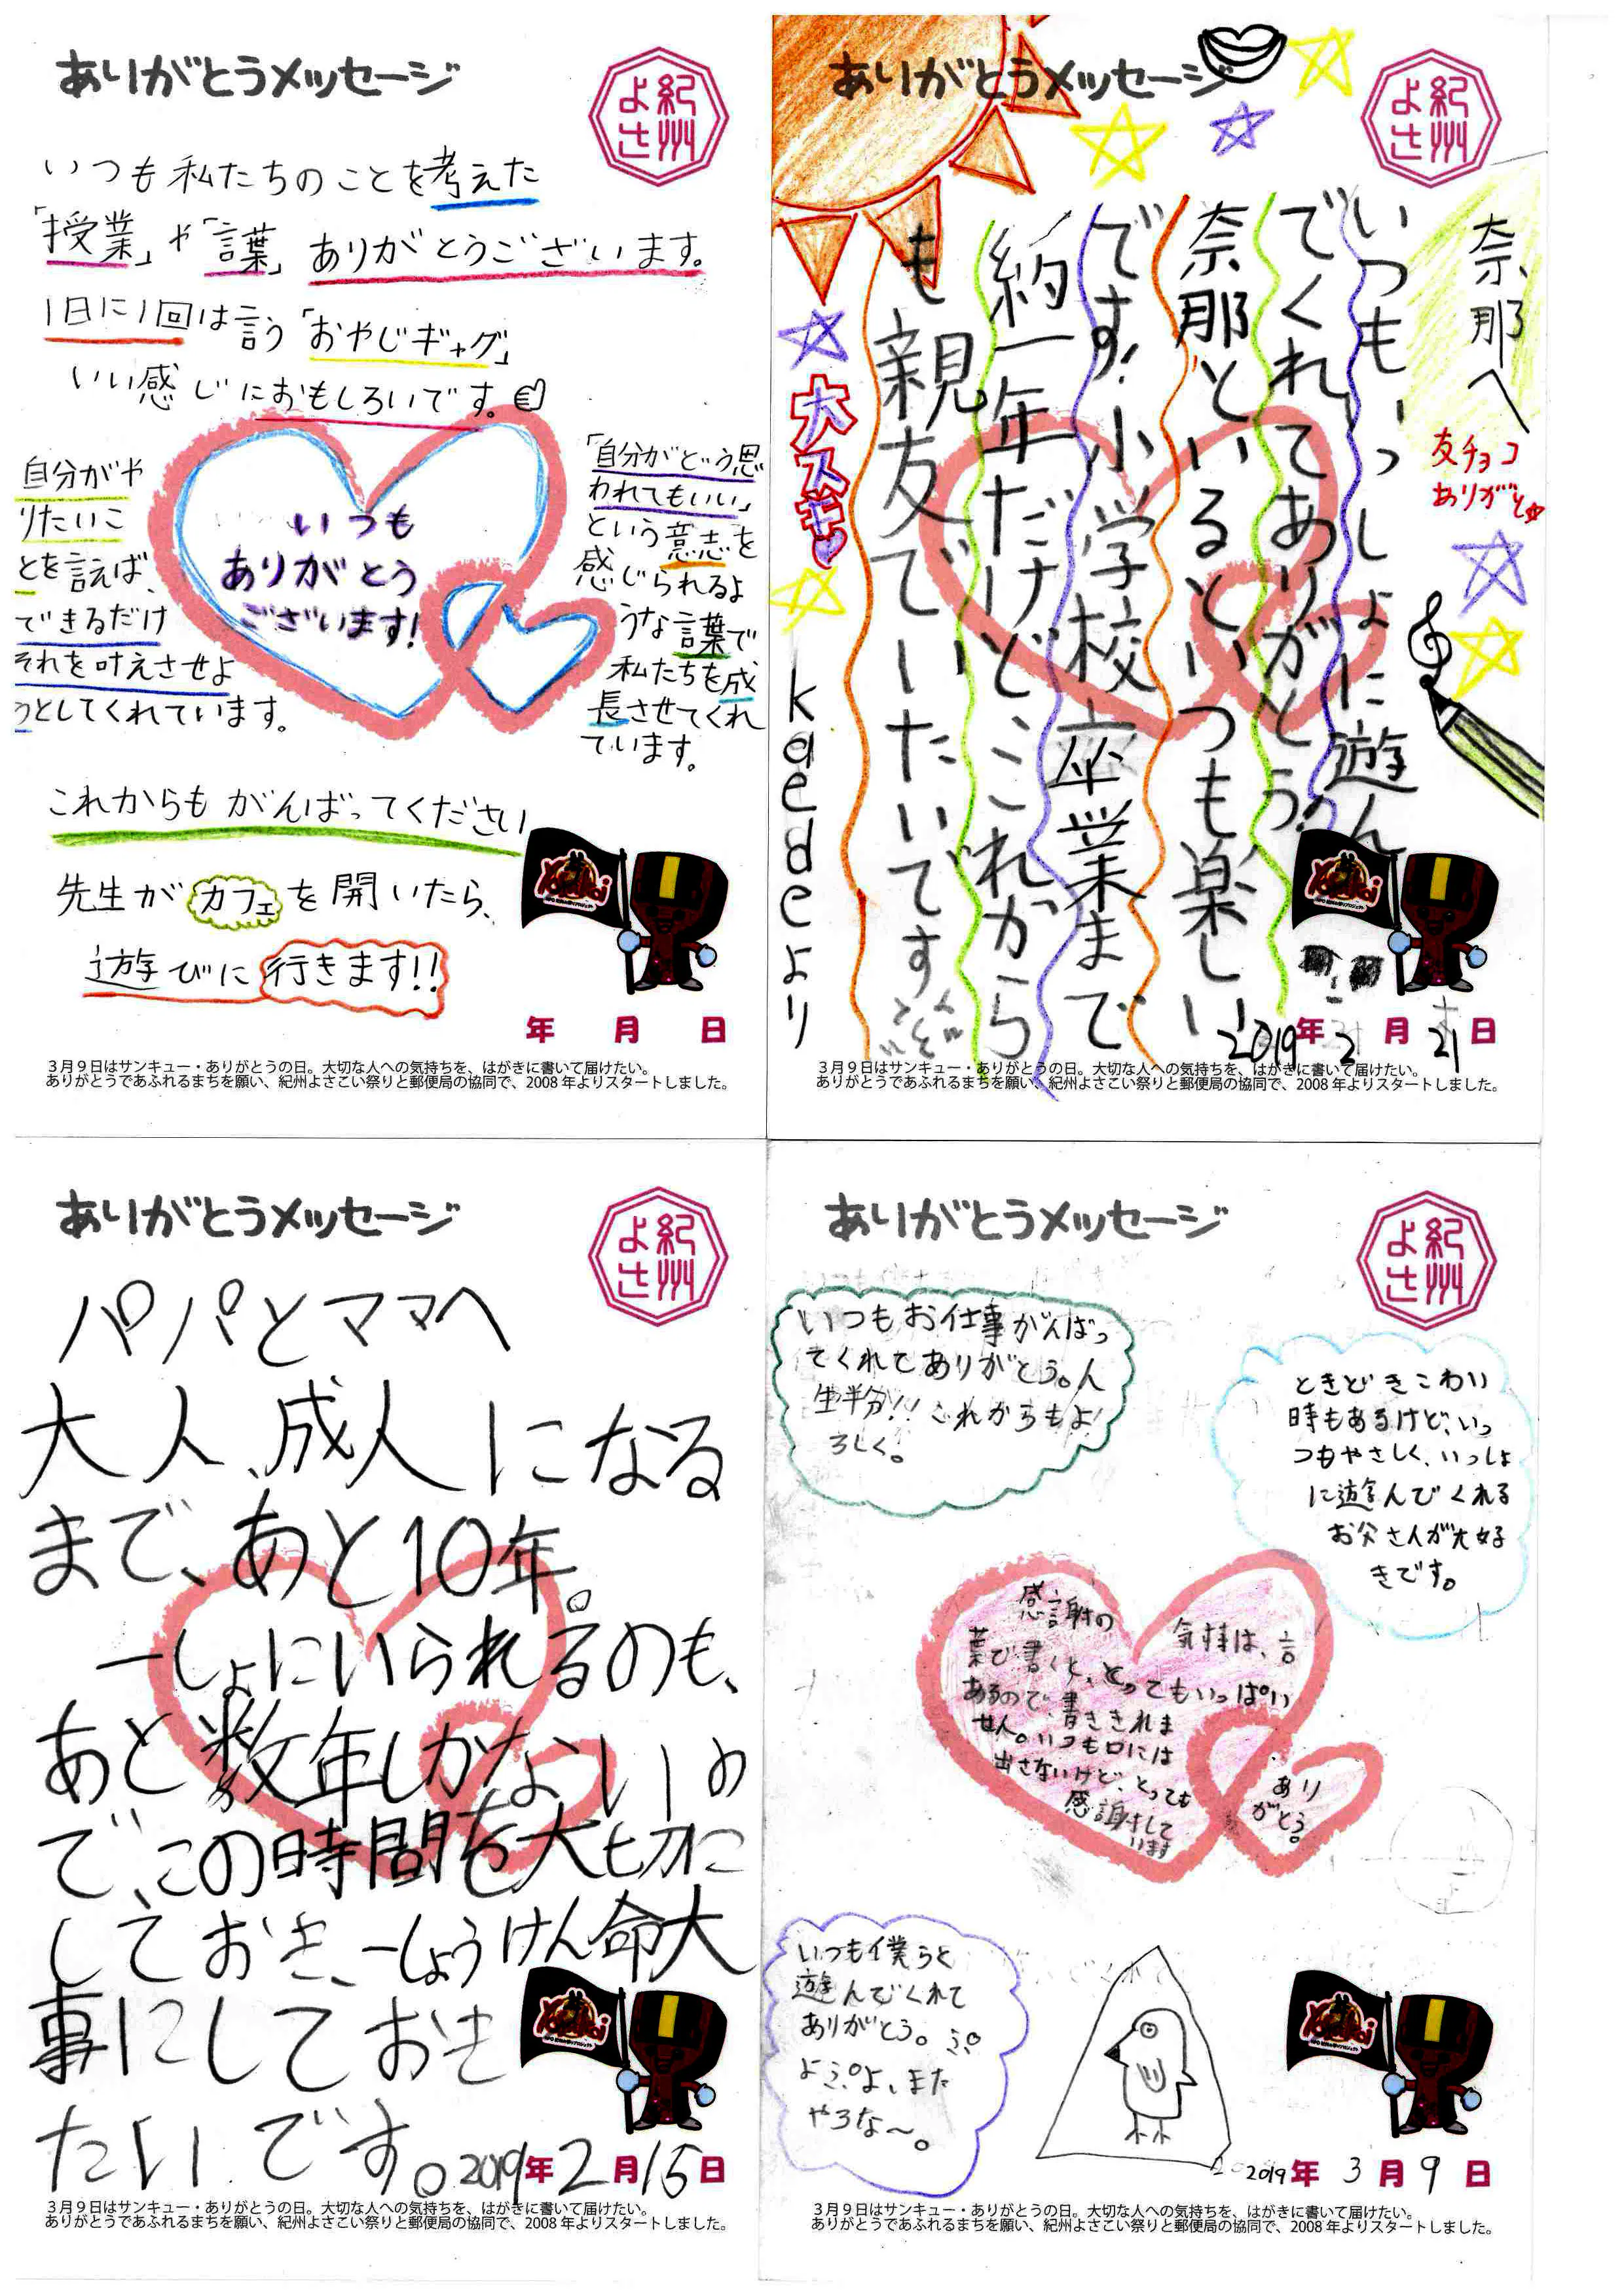 ありがとうメッセージ
紀州
よさ
いつも私たちのことを考えた
「授業」や「言葉」ありがとうございます。
1日に1回は言う「おやじギャグ」
いい感じにおもしろいです。
自分がや
りたいこ
とを言えば、
できるだけ
それを叶えさせよ
うとしてくれています。
いつも
ありがとう
ございます!
「自分がどう思
われてもいい」
という意志を
感じられるよ
うな言葉で
私たちを成
長させてくれ
ています。
これからもがんばってください
先生がカフェを開いたら、
遊びに行きます!!
Yosakoi
年 月 日
3月9日はサンキュー・ありがとうの日。大切な人への気持ちを、はがきに書いて届けたい。
ありがとうであふれるまちを願い、紀州よさこい祭りと郵便局の協同で、2008年よりスタートしました。
ありがとうメッセージ
紀州
よさ
奈那へ
友チョコ
ありがと
いつもいっしょに遊ん
でくれてありがとう!
奈那といるといつも楽しい
です!小学校卒業まで
約一年だけど、これから
も親友でいたいです
大スキ
kaedeより
Yosakoi
2019年2月21日
3月9日はサンキュー・ありがとうの日。大切な人への気持ちを、はがきに書いて届けたい。
ありがとうであふれるまちを願い、紀州よさこい祭りと郵便局の協同で、2008年よりスタートしました。
ありがとうメッセージ
紀州
よさ
パパとママへ
大人、成人になる
まで、あと10年。
一しょにいられるのも、
あと数年しかないの
で、この時間を大切に
しておき、一しょうけん命大
事にしておき
たいです。
Yosakoi
2019年2月15日
3月9日はサンキュー・ありがとうの日。大切な人への気持ちを、はがきに書いて届けたい。
ありがとうであふれるまちを願い、紀州よさこい祭りと郵便局の協同で、2008年よりスタートしました。
ありがとうメッセージ
紀州
よさ
いつもお仕事がんばっ
てくれてありがとう。人
生半分!!これからもよ
ろしく。
ときどきこわい
時もあるけど、いっ
つもやさしく、いっしょ
に遊んでくれる
お父さんが大好
きです。
感謝の気持は、言
葉で書くと、とってもいっぱい
あるので、書ききれま
せん。いつも口には
出さないけど、とっても
感謝して
います
あり
がとう。
いつも僕らと
遊んでくれて
ありがとう。ぷ
よぷよ、また
やろな〜。
Yosakoi
2019年3月9日
3月9日はサンキュー・ありがとうの日。大切な人への気持ちを、はがきに書いて届けたい。
ありがとうであふれるまちを願い、紀州よさこい祭りと郵便局の協同で、2008年よりスタートしました。